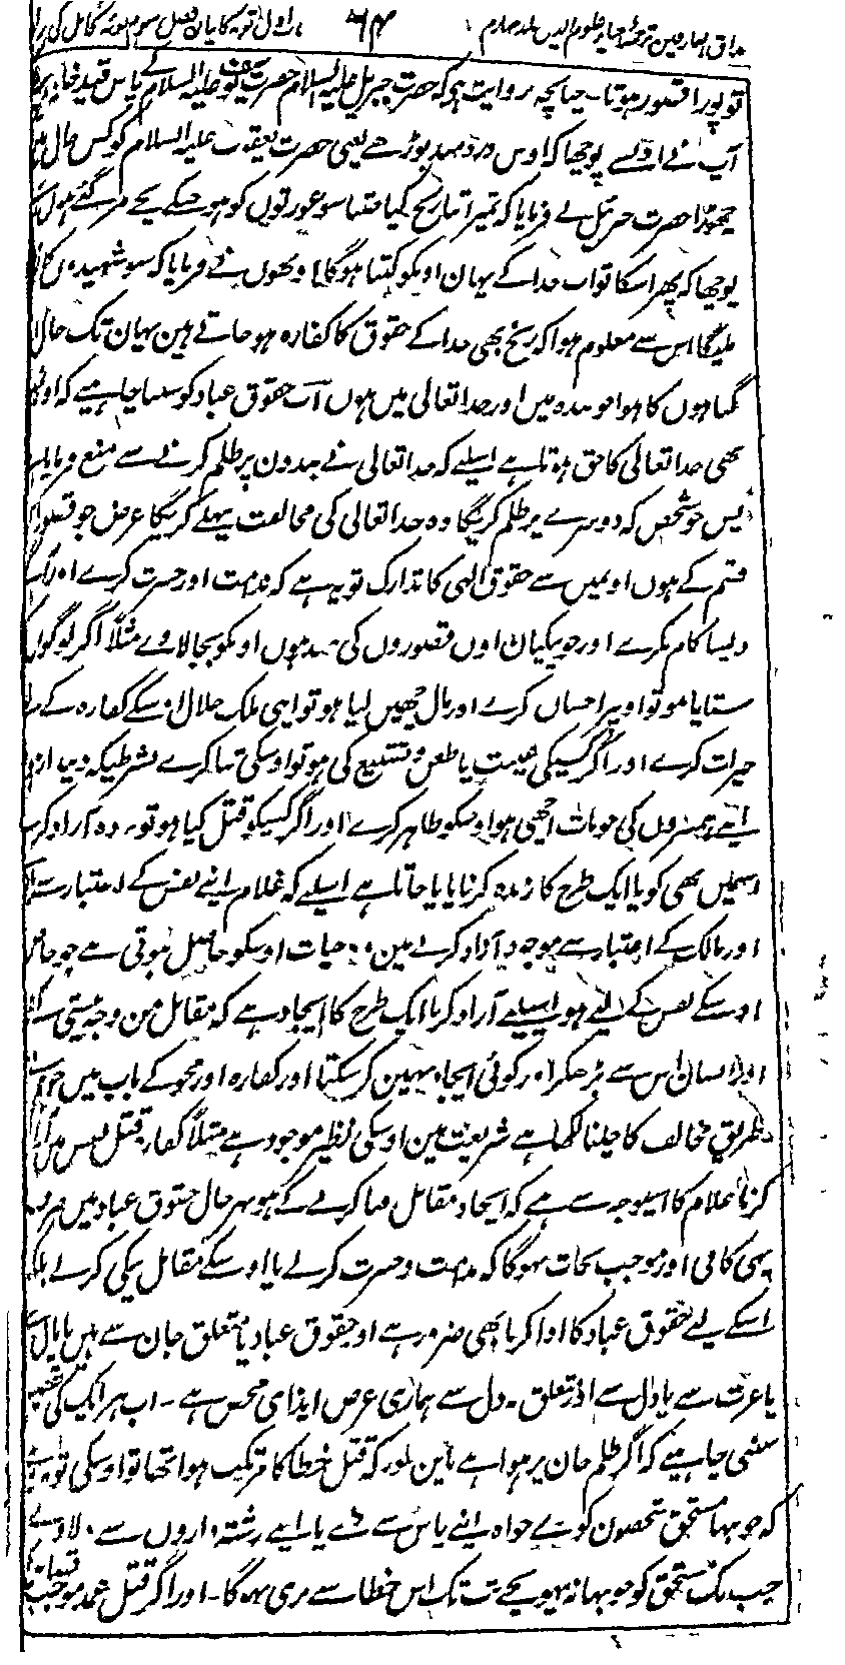 مذاق العارفین ترجمہ احیاء علوم الدین جلد چہارم ۴۶ باب اول توبہ کا بیان فصل سوم
تو پورا قصور ہوتا۔ چنانچہ روایت ہو کہ حضرت جبریل علیہ السلام حضرت یوسف علیہ السلام کے پاس قید خانہ
آپ نے اونسے پوچھا کہ اوس دردمند بوڑھے یعنی حضرت یعقوب علیہ السلام کو کس حال
چھوڑا حضرت جبریل نے فرمایا کہ تمپر اتنا رنج کیا جتنا سو عورتوں کو ہو جنکے بچے مر گئے ہوں
پوچھا کہ پھر اسکا ثواب خدا کے یہان اونکو کتنا ہوگا اونھوں نے فرمایا کہ سو شہیدوں کا
ملیگا اس سے معلوم ہوا کہ رنج بھی خدا کے حقوق کا کفارہ ہو جاتے ہین یہان تک حال
گناہوں کا ہوا جو بندہ میں اور خدا تعالی میں ہوں اب حقوق عباد کو سننا چاہیے کہ
بھی خدا تعالی کا حق ہوتا ہے اسلیے کہ خدا تعالی نے بندون پر ظلم کرنے سے منع فرمایا
پس جو شخص کہ دوسرے پر ظلم کریگا وہ خدا تعالی کی مخالفت پہلے کریگا غرض جو قصور
قسم کے ہوں اونمیں سے حقوق الہی کا تدارک تو یہ ہے کہ ندامت اور حسرت کرے اور
ویسا کام نکرے اور جو نیکیان اون قصوروں کی ضد ہوں اونکو بجا لاوے مثلاً اگر لوگوں
ستایا ہو تو اونپر احسان کرے اور مال چھین لیا ہو تو اپنی ملک حلال اوسکے کفارہ کے
خیرات کرے اور اگر کسیکی غیبت یا طعن و تشنیع کی ہو تو اوسکی ثنا کرے بشرطیکہ دیندار
اپنے ہمسروں کی جو بات اچھی ہو اوسکو ظاہر کرے اور اگر کسیکو قتل کیا ہو تو بردہ آزاد کرے
اسمیں بھی گویا ایک طرح کا زندہ کرنا پایا جاتا ہے اسلیے کہ غلام اپنے نفس کے اعتبار سے
اور مالک کے اعتبار سے موجود آزاد کرنے مین وہ حیات اوسکو حاصل ہوتی ہے جو خاص
اوسکے نفس کے لیے ہو اسلیے آزاد کرنا ایک طرح کا ایجاد ہے کہ مقابل من وجہ نیستی کے
اور انسان اس سے بڑھکر اور کوئی ایجاد نہین کر سکتا اور کفارہ اور محو کے باب میں جو
طریق مخالف کا چلنا لکھا ہے شریعت مین اوسکی نظیر موجود ہے مثلاً کفارہ قتل نفس میں آزاد
کرنا غلام کا اسیوجہ سے ہے کہ ایجاد مقابل فنا کرنے کے ہو بہر حال حقوق عباد میں صرف
یہی کافی اور موجب نجات نہوگا کہ ندامت و حسرت کرلے یا اوسکے مقابل نیکی کرلے بلکہ
اسکے لیے حقوق عباد کا ادا کرنا بھی ضرور ہے اور حقوق عباد یا متعلق جان سے ہیں یا مال سے
یا عزت سے یا دل سے اور تعلق دل سے ہماری غرض ایذای محض ہے۔ اب ہر ایک کی تفصیل
سننی چاہیے کہ اگر ظلم جان پر ہوا ہے باین طور کہ قتل خطا کا مرتکب ہوا تھا تو اوسکی توبہ یہ ہے
کہ خونبہا مستحق شخصون کو دے خواہ اپنے پاس سے دے یا اپنے رشتہ داروں سے دلاوے
جب تک مستحق کو خونبہا نہ پہونچے تب تک اس خطا سے بری نہوگا۔ اور اگر قتل عمد موجب قصاص